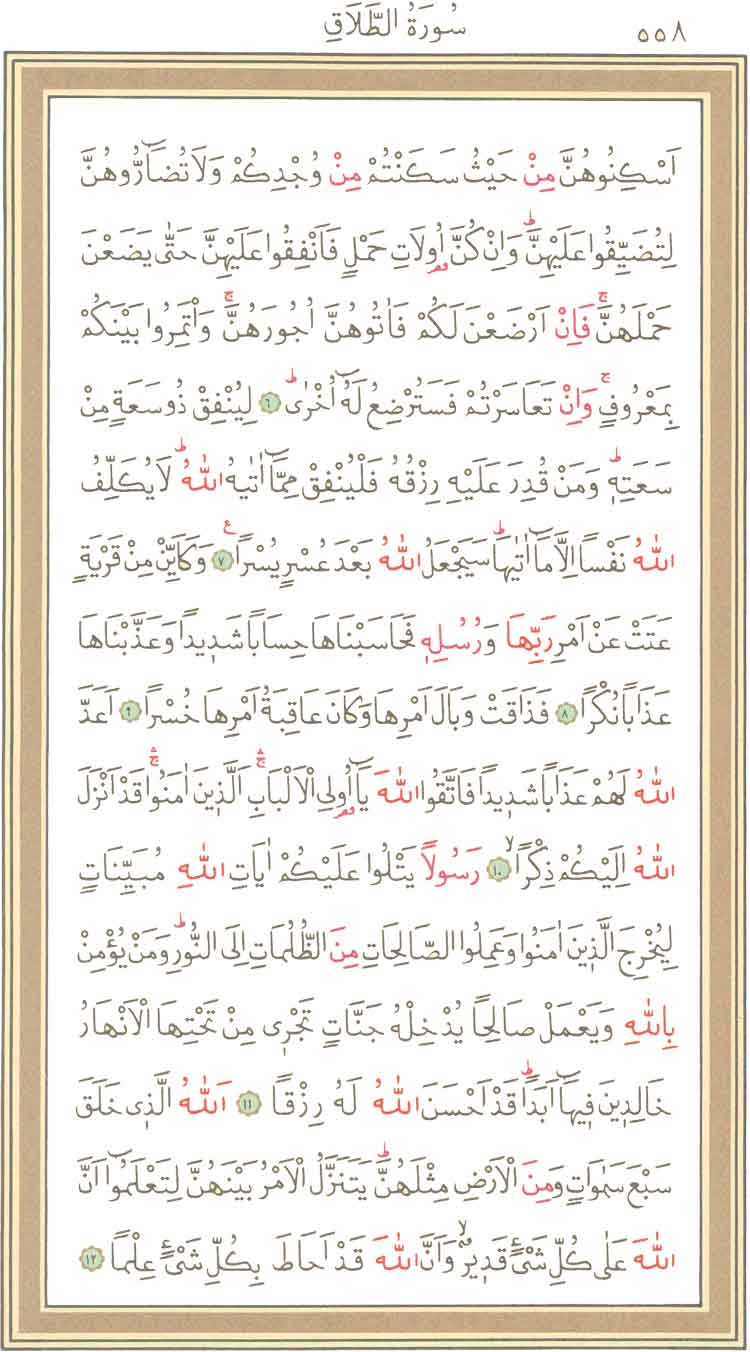 ٥٥٨ سُورَةُ الطَّلَاقِ
اَسْكِنُوهُنَّ مِنْ حَيْثُ سَكَنْتُمْ مِنْ وُجْدِكُمْ وَلَا تُضَٓارُّوهُنَّ
لِتُضَيِّقُوا عَلَيْهِنَّۜ وَاِنْ كُنَّ اُو۬لَاتِ حَمْلٍ فَاَنْفِقُوا عَلَيْهِنَّ حَتّٰى يَضَعْنَ
حَمْلَهُنَّۚ فَاِنْ اَرْضَعْنَ لَكُمْ فَاٰتُوهُنَّ اُجُورَهُنَّۚ وَأْتَمِرُوا بَيْنَكُمْ
بِمَعْرُوفٍۚ وَاِنْ تَعَاسَرْتُمْ فَسَتُرْضِعُ لَهُٓ اُخْرٰىۜ ﴿٦﴾ لِيُنْفِقْ ذُوسَعَةٍ مِنْ
سَعَتِهٖۜ وَمَنْ قُدِرَ عَلَيْهِ رِزْقُهُ فَلْيُنْفِقْ مِمَّٓا اٰتٰيهُ اللّٰهُۜ لَا يُكَلِّفُ
اللّٰهُ نَفْسًا اِلَّا مَٓا اٰتٰيهَاۜ سَيَجْعَلُ اللّٰهُ بَعْدَ عُسْرٍ يُسْرًا ﴿٧﴾ ع وَكَاَيِّنْ مِنْ قَرْيَةٍ
عَتَتْ عَنْ اَمْرِ رَبِّهَا وَرُسُلِهٖ فَحَاسَبْنَاهَا حِسَابًا شَدٖيدًا وَعَذَّبْنَاهَا
عَذَابًا نُكْرًا ﴿٨﴾ فَذَاقَتْ وَبَالَ اَمْرِهَا وَكَانَ عَاقِبَةُ اَمْرِهَا خُسْرًا ﴿٩﴾ اَعَدَّ
اللّٰهُ لَهُمْ عَذَابًا شَدٖيدًا فَاتَّقُوا اللّٰهَ يَٓا اُو۬لِي الْاَلْبَابِۛۚ اَلَّذٖينَ اٰمَنُواۛۚ قَدْ اَنْزَلَ
اللّٰهُ اِلَيْكُمْ ذِكْرًاۙ ﴿١٠﴾ رَسُولًا يَتْلُوا عَلَيْكُمْ اٰيَاتِ اللّٰهِ مُبَيِّنَاتٍ
لِيُخْرِجَ الَّذٖينَ اٰمَنُوا وَعَمِلُوا الصَّالِحَاتِ مِنَ الظُّلُمَاتِ اِلَى النُّورِۜ وَمَنْ يُؤْمِنْ
بِاللّٰهِ وَيَعْمَلْ صَالِحًا يُدْخِلْهُ جَنَّاتٍ تَجْرٖي مِنْ تَحْتِهَا الْاَنْهَارُ
خَالِدٖينَ فٖيهَٓا اَبَدًاۜ قَدْ اَحْسَنَ اللّٰهُ لَهُ رِزْقًا ﴿١١﴾ اَللّٰهُ الَّذٖي خَلَقَ
سَبْعَ سَمٰوَاتٍ وَمِنَ الْاَرْضِ مِثْلَهُنَّۜ يَتَنَزَّلُ الْاَمْرُ بَيْنَهُنَّ لِتَعْلَمُٓوا اَنَّ
اللّٰهَ عَلٰى كُلِّ شَيْءٍ قَدٖيرٌۙ وَاَنَّ اللّٰهَ قَدْ اَحَاطَ بِكُلِّ شَيْءٍ عِلْمًا ﴿١٢﴾